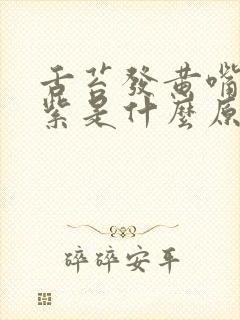 舌苔發黃嘴
紫是什麼原
碎碎安平